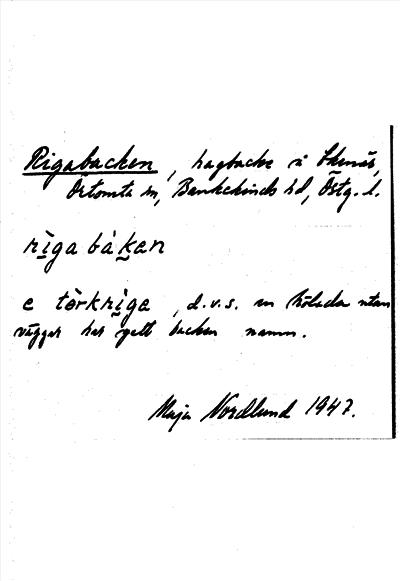 Rigabacken, hagbacke i Ekenäs,
Örtomta sn, Bankekinds hd, Östg. l.
rìga bàkan
e tòrkrìga, d.v.s. en hölada utan
väggar har gett backen namn.
Maja Nordlund 1947.